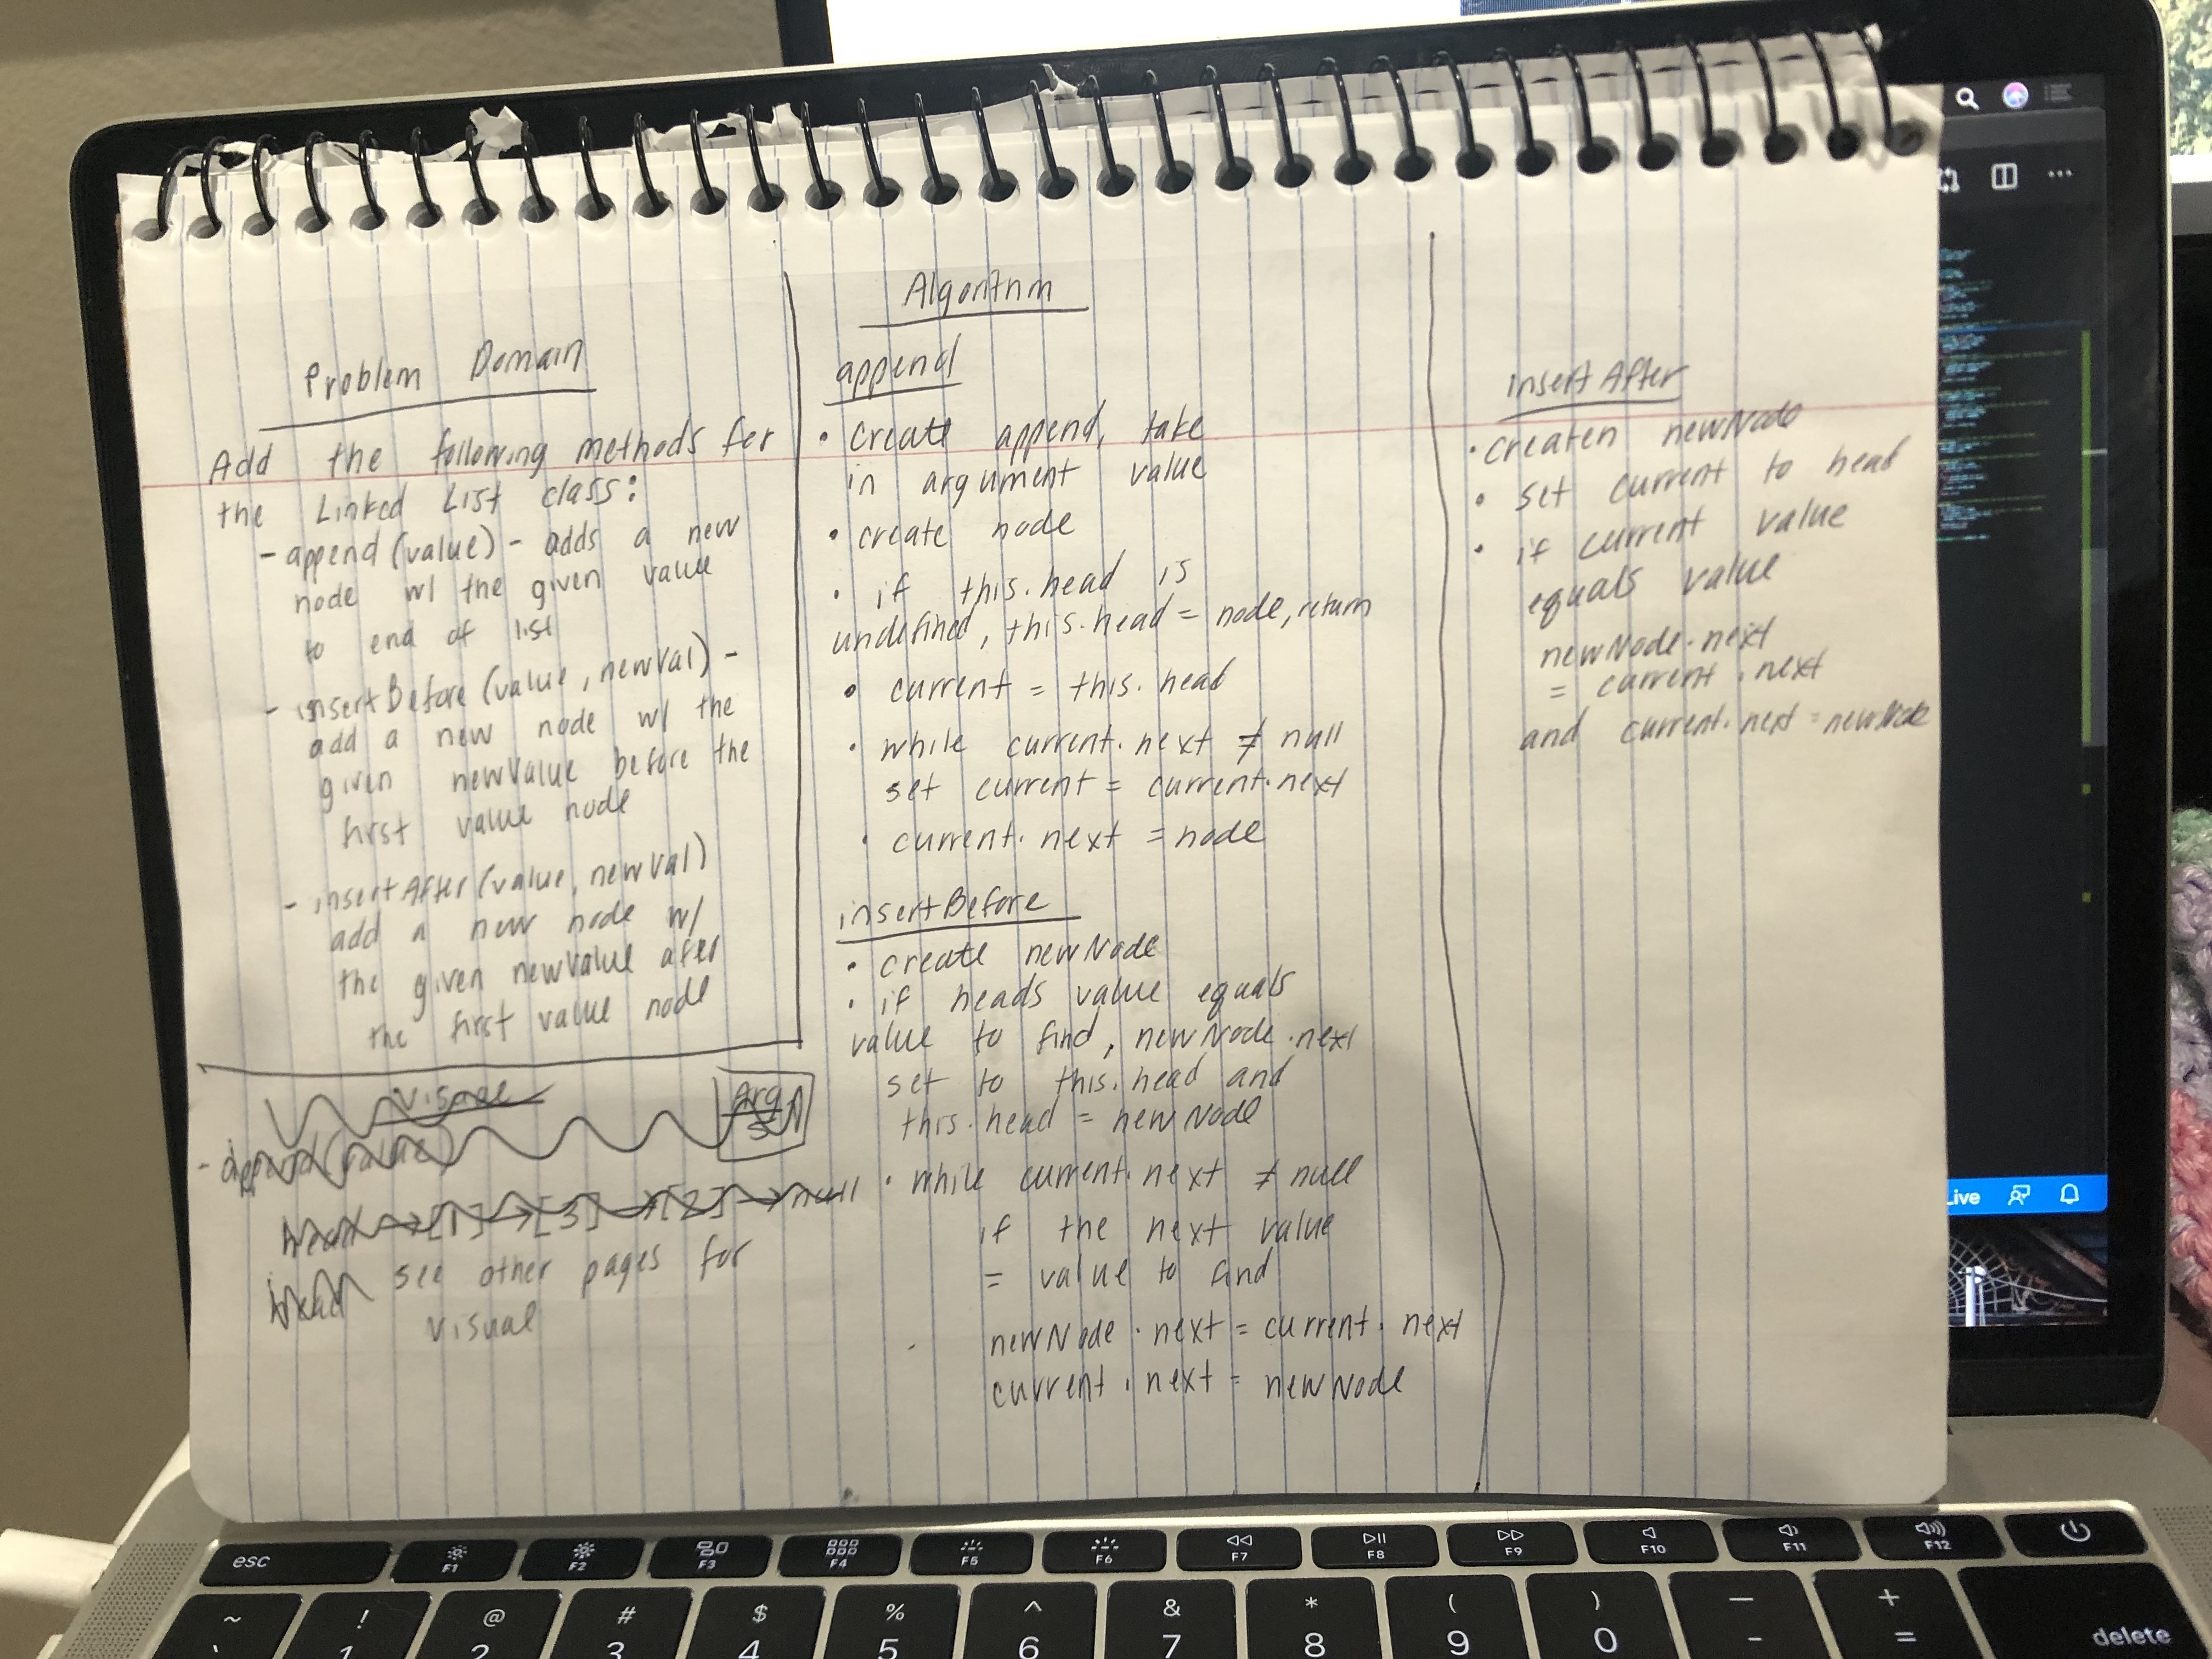 Problem Domain
Add the following methods for
the Linked List class:
- append (value) - adds a new
node w/ the given value
to end of list
- insertBefore (value, newVal) -
add a new node w/ the
given newValue before the
first value node
- insertAfter (value, newVal)
add a new node w/
the given newValue after
the first value node
Visual
Arg
5
- append (value)
head → [1] → [3] → [2] → null
head see other pages for
visual
Algorithm
append
• create append, take
in argument value
• create node
• if this.head is
undefined, this.head = node, return
• current = this.head
• while current.next ≠ null
set current = current.next
• current.next = node
insertBefore
• create newNode
• if heads value equals
value to find, newNode.next
set to this.head and
this.head = newNode
• while current.next ≠ null
if the next value
= value to find
newNode.next = current.next
current.next = newNode
insertAfter
• createn newNode
• set current to head
• if current value
equals value
newNode.next
= current.next
and current.next = newNode
Live
esc
F1
F2
F3
F4
F5
F6
F7
F8
F9
F10
F11
F12
~ ! @ # $ % ^ & * ( ) — +
\` 1 2 3 4 5 6 7 8 9 0 - =
delete